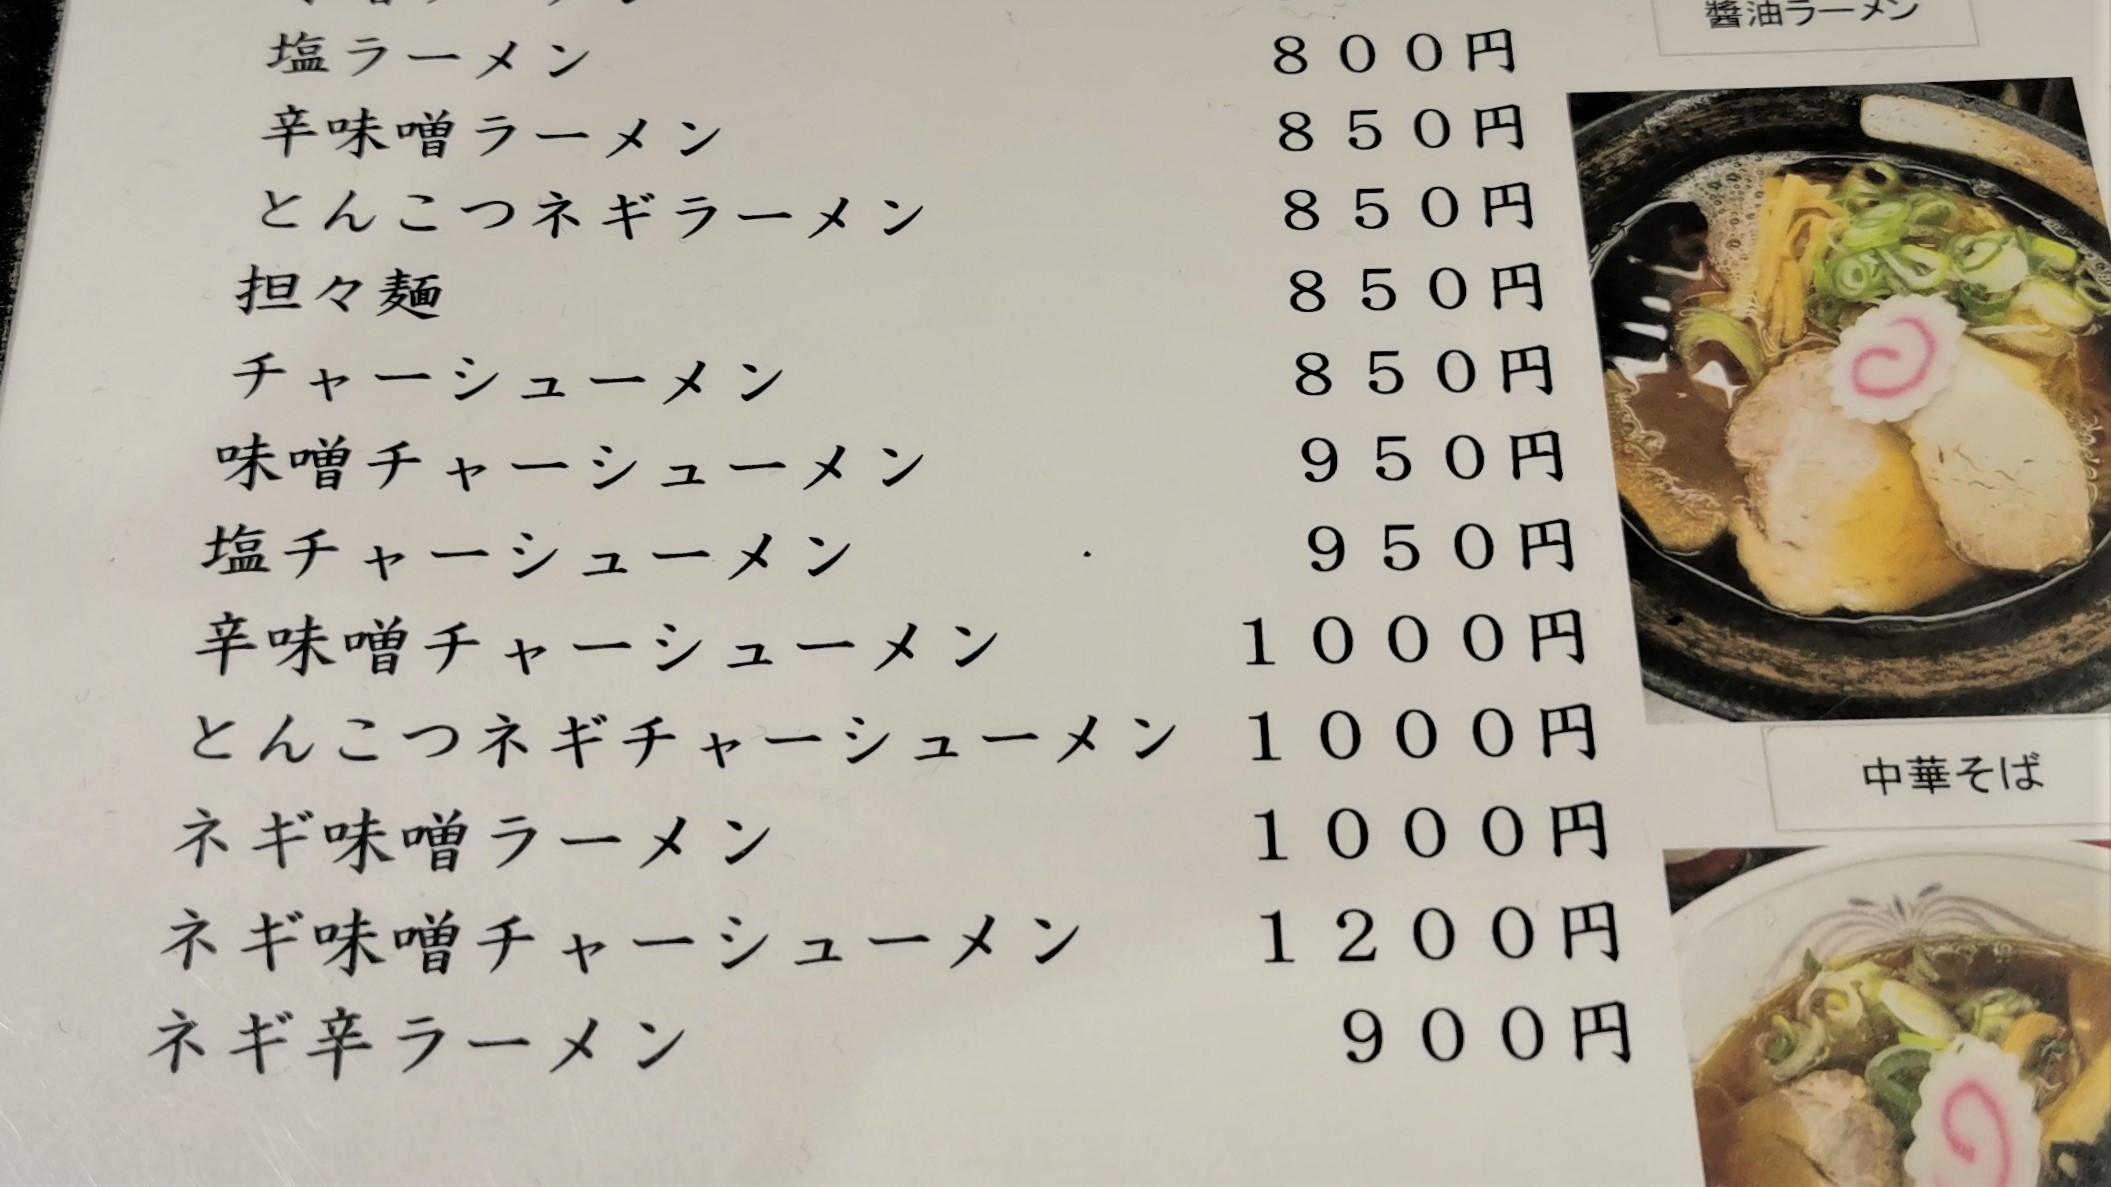 塩ラーメン ８００円
辛味噌ラーメン ８５０円
とんこつネギラーメン ８５０円
担々麺 ８５０円
チャーシューメン ８５０円
味噌チャーシューメン ９５０円
塩チャーシューメン ９５０円
辛味噌チャーシューメン １０００円
とんこつネギチャーシューメン １０００円
ネギ味噌ラーメン １０００円
ネギ味噌チャーシューメン １２００円
ネギ辛ラーメン ９００円
醬油ラーメン
中華そば